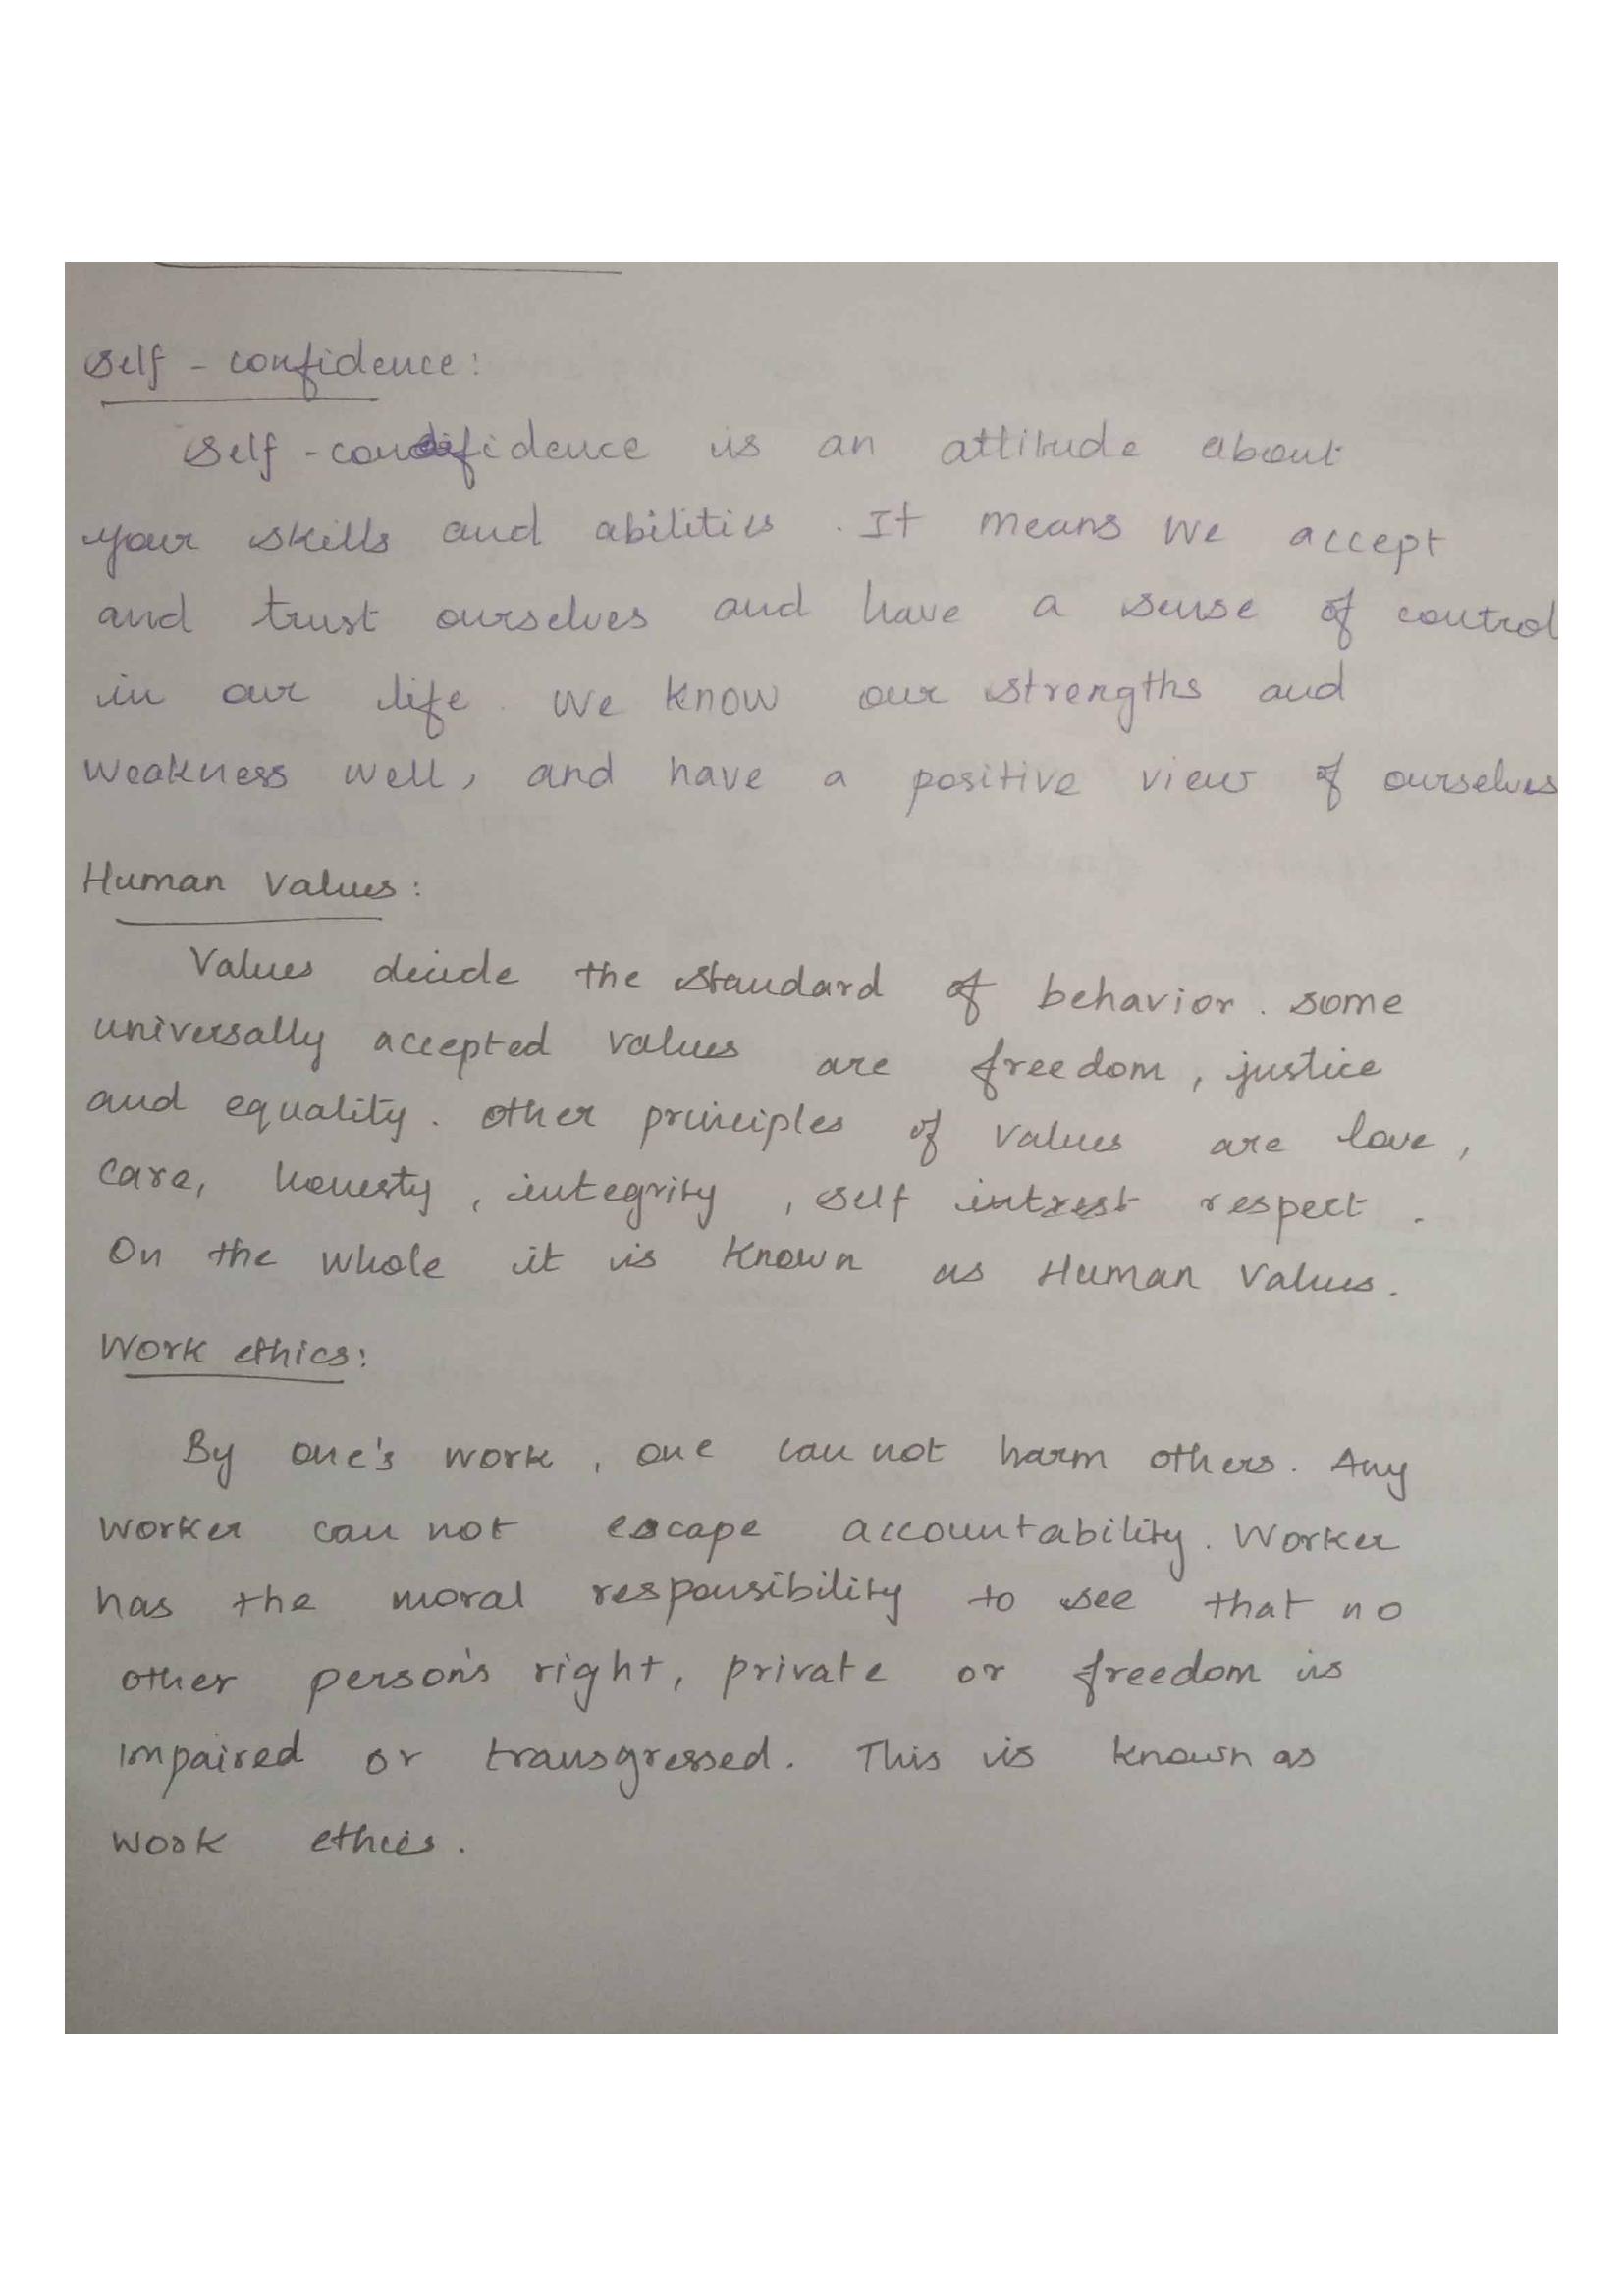 Self - confidence:
Self - confidence is an attitude about
your skills and abilities. It means we accept
and trust ourselves and have a sense of control
in our life. We know our strengths and
weakness well, and have a positive view of ourselves
Human Values:
Values decide the standard of behavior. some
universally accepted values are freedom, justice
and equality. other principles of values are love,
care, honesty, integrity, self intrest respect.
On the whole it is known as Human Values.
Work ethics:
By one's work, one can not harm others. Any
worker can not escape accountability. Worker
has the moral responsibility to see that no
other person's right, private or freedom is
impaired or transgressed. This is known as
work ethics.